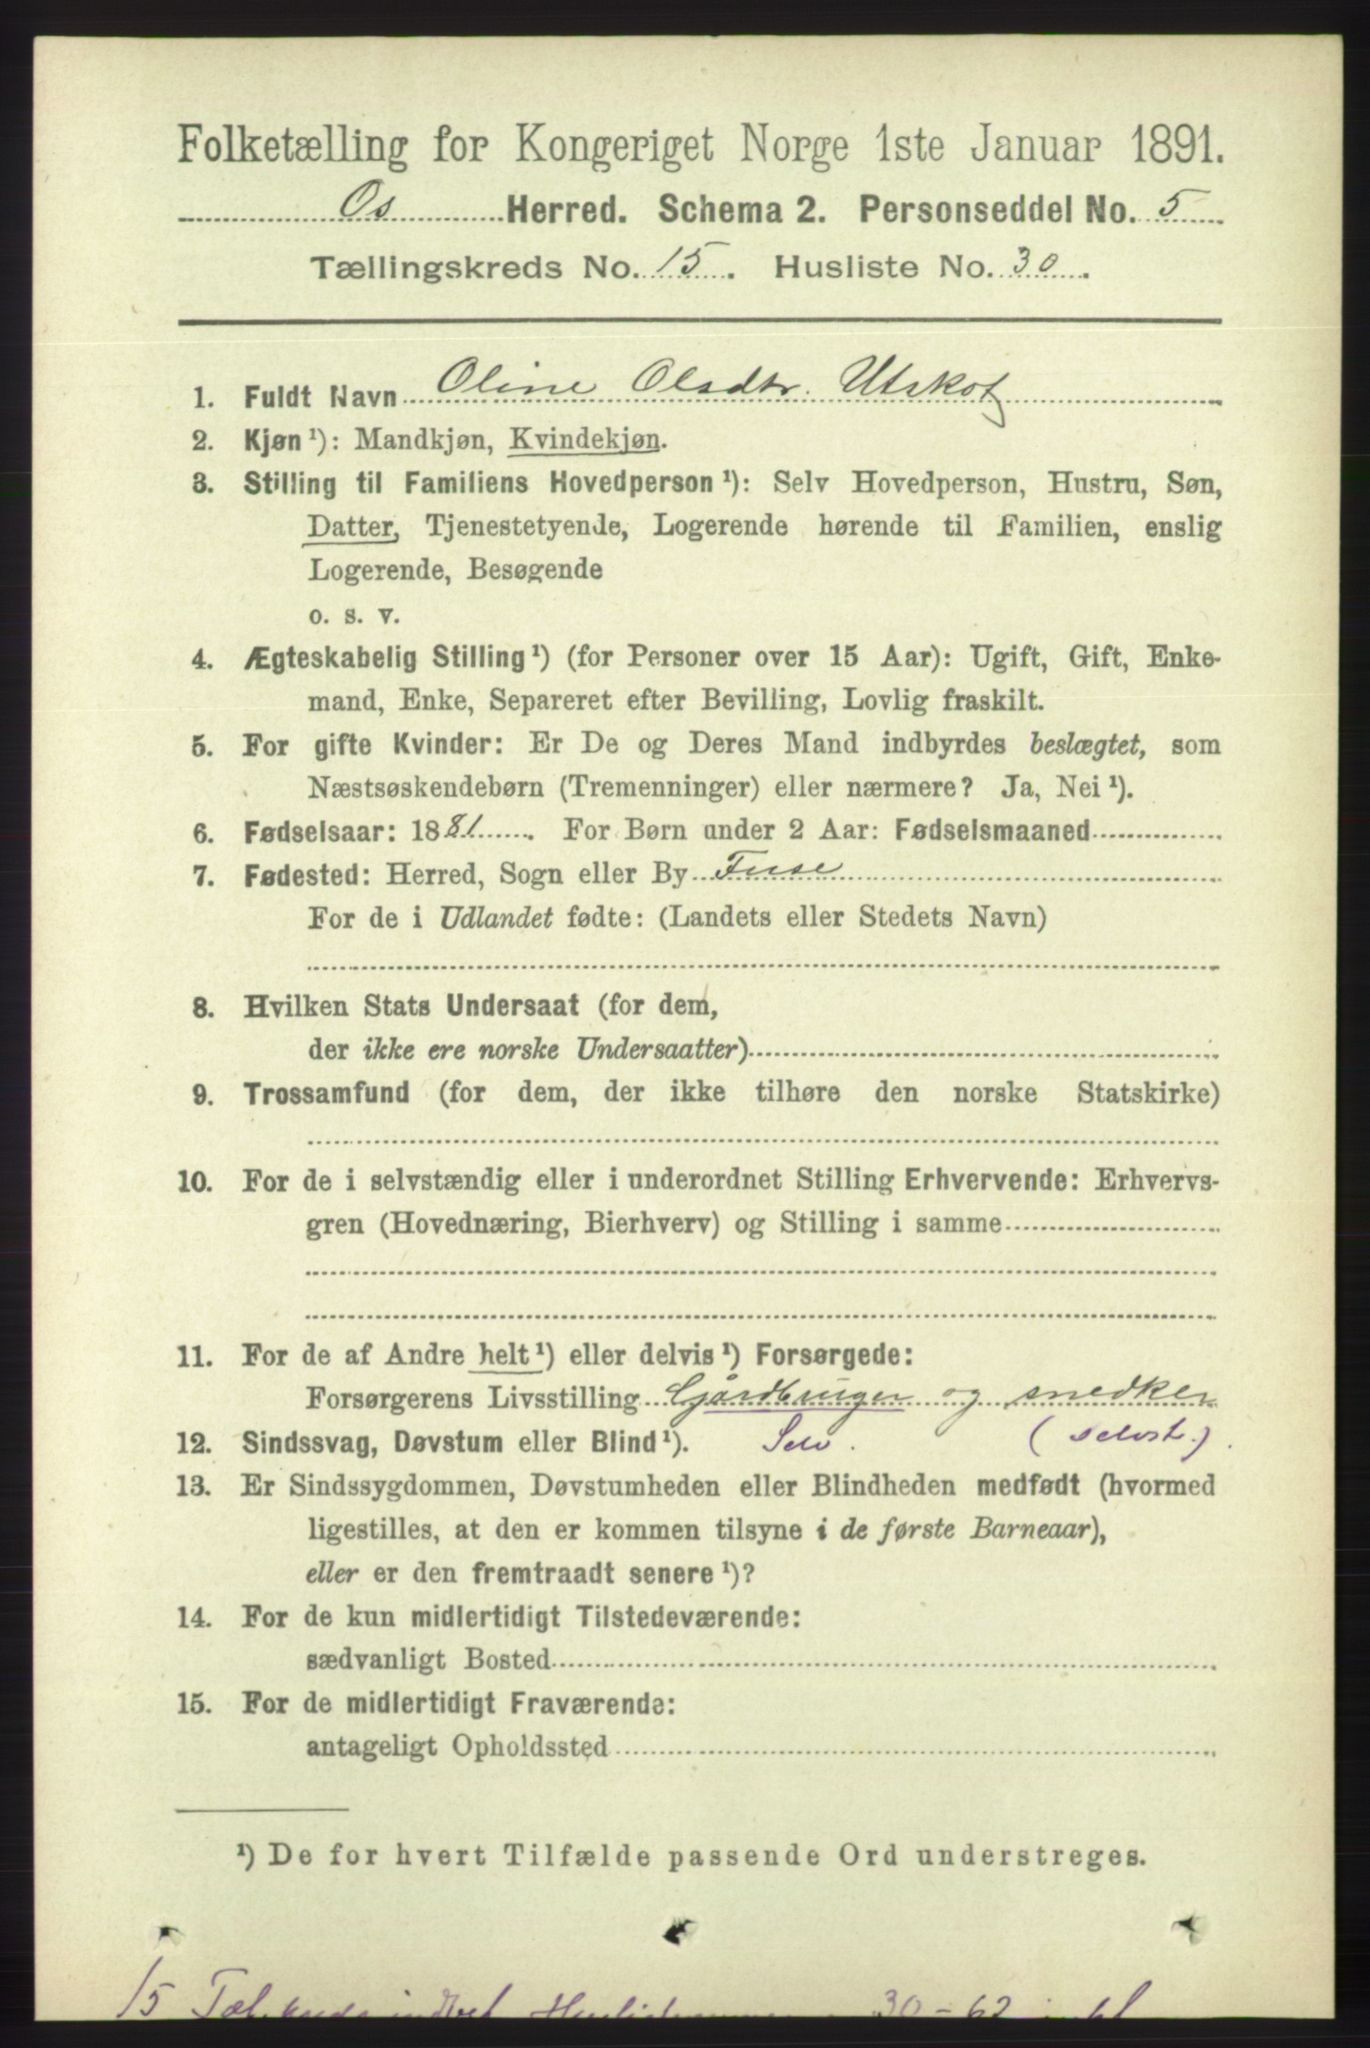 Folketælling for Kongeriget Norge 1ste Januar 1891.
Os Herred. Schema 2. Personseddel No. 5
Tællingskreds No. 15. Husliste No. 30.
1. Fuldt Navn Oline Olsdtr. Utskot
2. Kjøn ¹): Mandkjøn, Kvindekjøn.
3. Stilling til Familiens Hovedperson ¹): Selv Hovedperson, Hustru, Søn,
Datter, Tjenestetyende, Logerende hørende til Familien, enslig
Logerende, Besøgende
o. s. v.
4. Ægteskabelig Stilling ¹) (for Personer over 15 Aar): Ugift, Gift, Enke-
mand, Enke, Separeret efter Bevilling, Lovlig fraskilt.
5. For gifte Kvinder: Er De og Deres Mand indbyrdes beslægtet, som
Næstsøskendebørn (Tremenninger) eller nærmere? Ja, Nei ¹).
6. Fødselsaar: 1881. For Børn under 2 Aar: Fødselsmaaned
7. Fødested: Herred, Sogn eller By Fuse
For de i Udlandet fødte: (Landets eller Stedets Navn)
8. Hvilken Stats Undersaat (for dem,
der ikke ere norske Undersaatter)
9. Trossamfund (for dem, der ikke tilhøre den norske Statskirke)
10. For de i selvstændig eller i underordnet Stilling Erhvervende: Erhvervs-
gren (Hovednæring, Bierhverv) og Stilling i samme
11. For de af Andre helt ¹) eller delvis ¹) Forsørgede:
Forsørgerens Livsstilling Gjårdbruger og snedker
12. Sindssvag, Døvstum eller Blind ¹). Selv. (selvst.).
13. Er Sindssygdommen, Døvstumheden eller Blindheden medfødt (hvormed
ligestilles, at den er kommen tilsyne i de første Barneaar),
eller er den fremtraadt senere ¹)?
14. For de kun midlertidigt Tilstedeværende:
sædvanligt Bosted
15. For de midlertidigt Fraværende:
antageligt Opholdssted
¹) De for hvert Tilfælde passende Ord understreges.
15 30-62